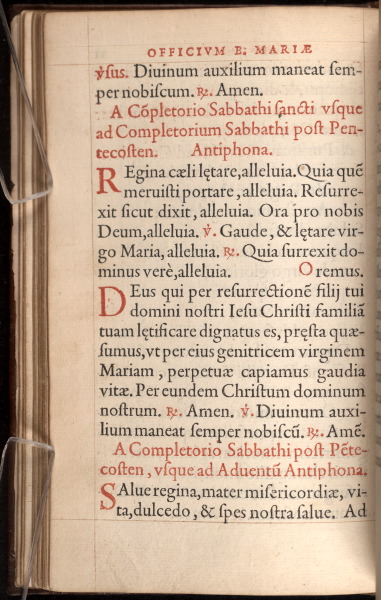 OFFICIVM B. MARIÆ
℣sus. Diuinum auxilium maneat sem-
per nobiscum. ℞. Amen.
A Cõpletorio Sabbathi sancti vsque
ad Completorium Sabbathi post Pen-
tecosten. Antiphona.
REgina cæli lętare, alleluia. Quia quẽ
meruisti portare, alleluia. Resurre-
xit sicut dixit, alleluia. Ora pro nobis
Deum, alleluia. ℣. Gaude, & lętare vir-
go Maria, alleluia. ℞. Quia surrexit do-
minus verè, alleluia. Oremus.
DEus qui per resurrectionẽ filij tui
domini nostri Iesu Christi familiã
tuam lętificare dignatus es, pręsta quæ-
sumus, vt per eius genitricem virginem
Mariam, perpetuæ capiamus gaudia
vitæ. Per eundem Christum dominum
nostrum. ℞. Amen. ℣. Diuinum auxi-
lium maneat semper nobiscũ. ℞. Amẽ.
A Completorio Sabbathi post Pẽte-
costen, vsque ad Aduentũ Antiphona.
SAlue regina, mater misericordiæ, vi-
ta, dulcedo, & spes nostra salue. Ad